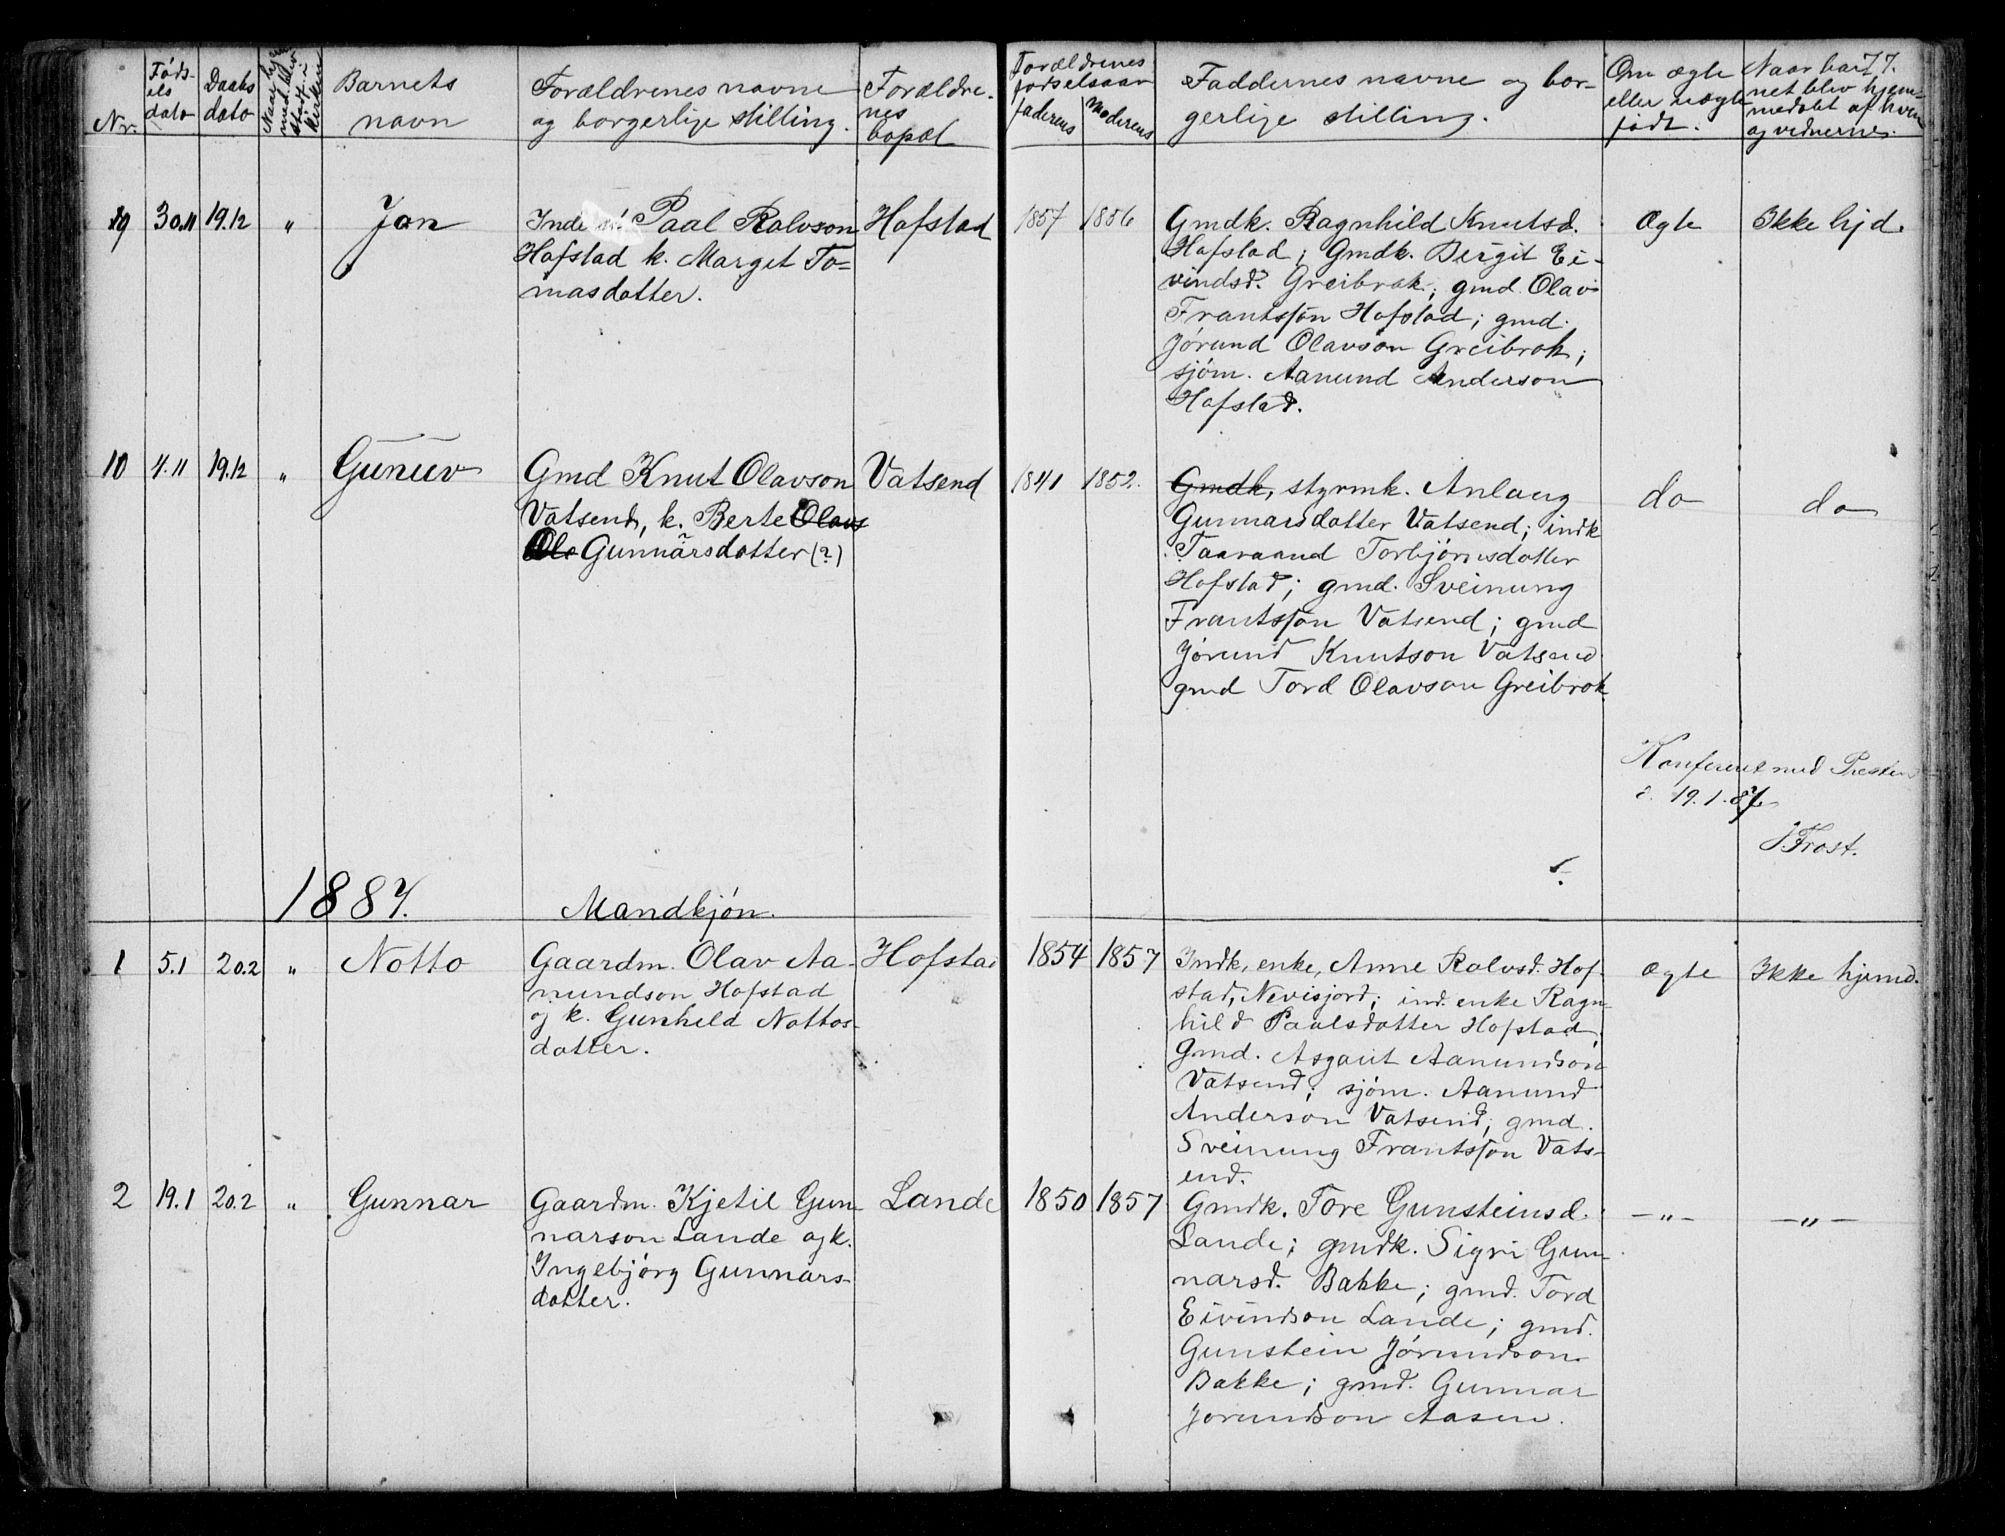 77.
Nr.
Føds-
els
dato
Daabs
dato
Naar hjem
med. blev
stadf. i
kirken
Barnets
navn
Forældrenes navne
og borgerlige stilling.
Forældre-
nes
bopæl
Forældrenes
fødselsaar
faderens
Moderens
Faddernes navne og bor-
gerlige stilling.
Om ægte
eller uægte
født.
Naar bar-
net blev hjem-
medøbt af hvem
og vidnerne.
9 30.11 19.12 " Jon
Paal Rolvson
Hofstad k. Marget To-
masdotter.
Hofstad
1857 1856
Gmdk. Ragnhild Knutsd.
Hofstad; Gmdk. Bergit Ei-
vindsd. Greibrok; gmd. Olav
Frantssøn Hofstad; gmd.
Jørund Olavson Greibrok;
sjøm. Aanund Anderson
Hofstad.
Ægte
Ikke hjd.
10 4.11 19.12 " Gunuv
Gmd Knut Olavson
Vatsend, k. Berte Olavs
Ols Gunnarsdotter (?)
Vatsend
1841 1852.
Gmdk, styrmk. Anlaug
Gunnarsdotter Vatsend; indk
Taaraand Torbjørnsdotter
Hofstad; gmd. Sveinung
Frantssøn Vatsend; gmd
Jørund Knutson Vatsend
gmd Tord Olavson Greibrok
do
do
Konfereret med Presten
d. 19.1.87
J. Frost.
1887.
Mandkjøn.
1 5.1 20.2 " Notto
Gaardm. Olav Aa-
nundson Hofstad
og k. Gunhild Nottos-
dotter.
Hofstad
1854 1857
Indk, enke, Anne Rolvsd. Hof-
stad, Nevisjord; ind. enke Ragn-
hild Paalsdotter Hofstad;
Gmd. Asgaut Aanundson
Vatsend; sjøm. Aanund
Anderson Vatsend; gmd.
Sveinung Frantssøn Vats-
end.
ægte
Ikke hjemd.
2 19.1 20.2 " Gunnar
Gaardm. Kjetil Gun-
narson Lande og k.
Ingebjørg Gunnars-
dotter.
Lande
1850 1857
Gmdk. Tore Gunsteinsd.
Lande; gmdk. Sigri Gun-
narsd. Bakke; gmd. Tord
Eivindson Lande; gmd.
Gunstein Jørundson
Bakke; gmd. Gunnar
Jorundson Aasen.
-"-
-"-